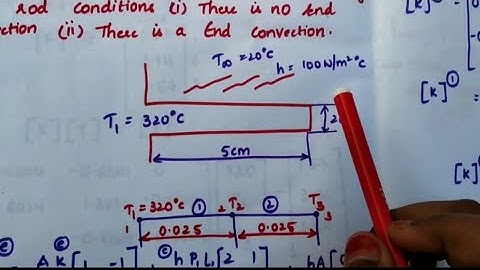 rod conditions (i) There is no end
ction (ii) There is a End Convection.
T∞ = 20°C
h = 100 W/m²°C
T₁ = 320°C
5cm
T₁ = 320°C ① 2 T₂ ② T₃
1 3
0.025 0.025
[K]
[K]①
[K]
A K [1 -1] h P L [2 1] hA